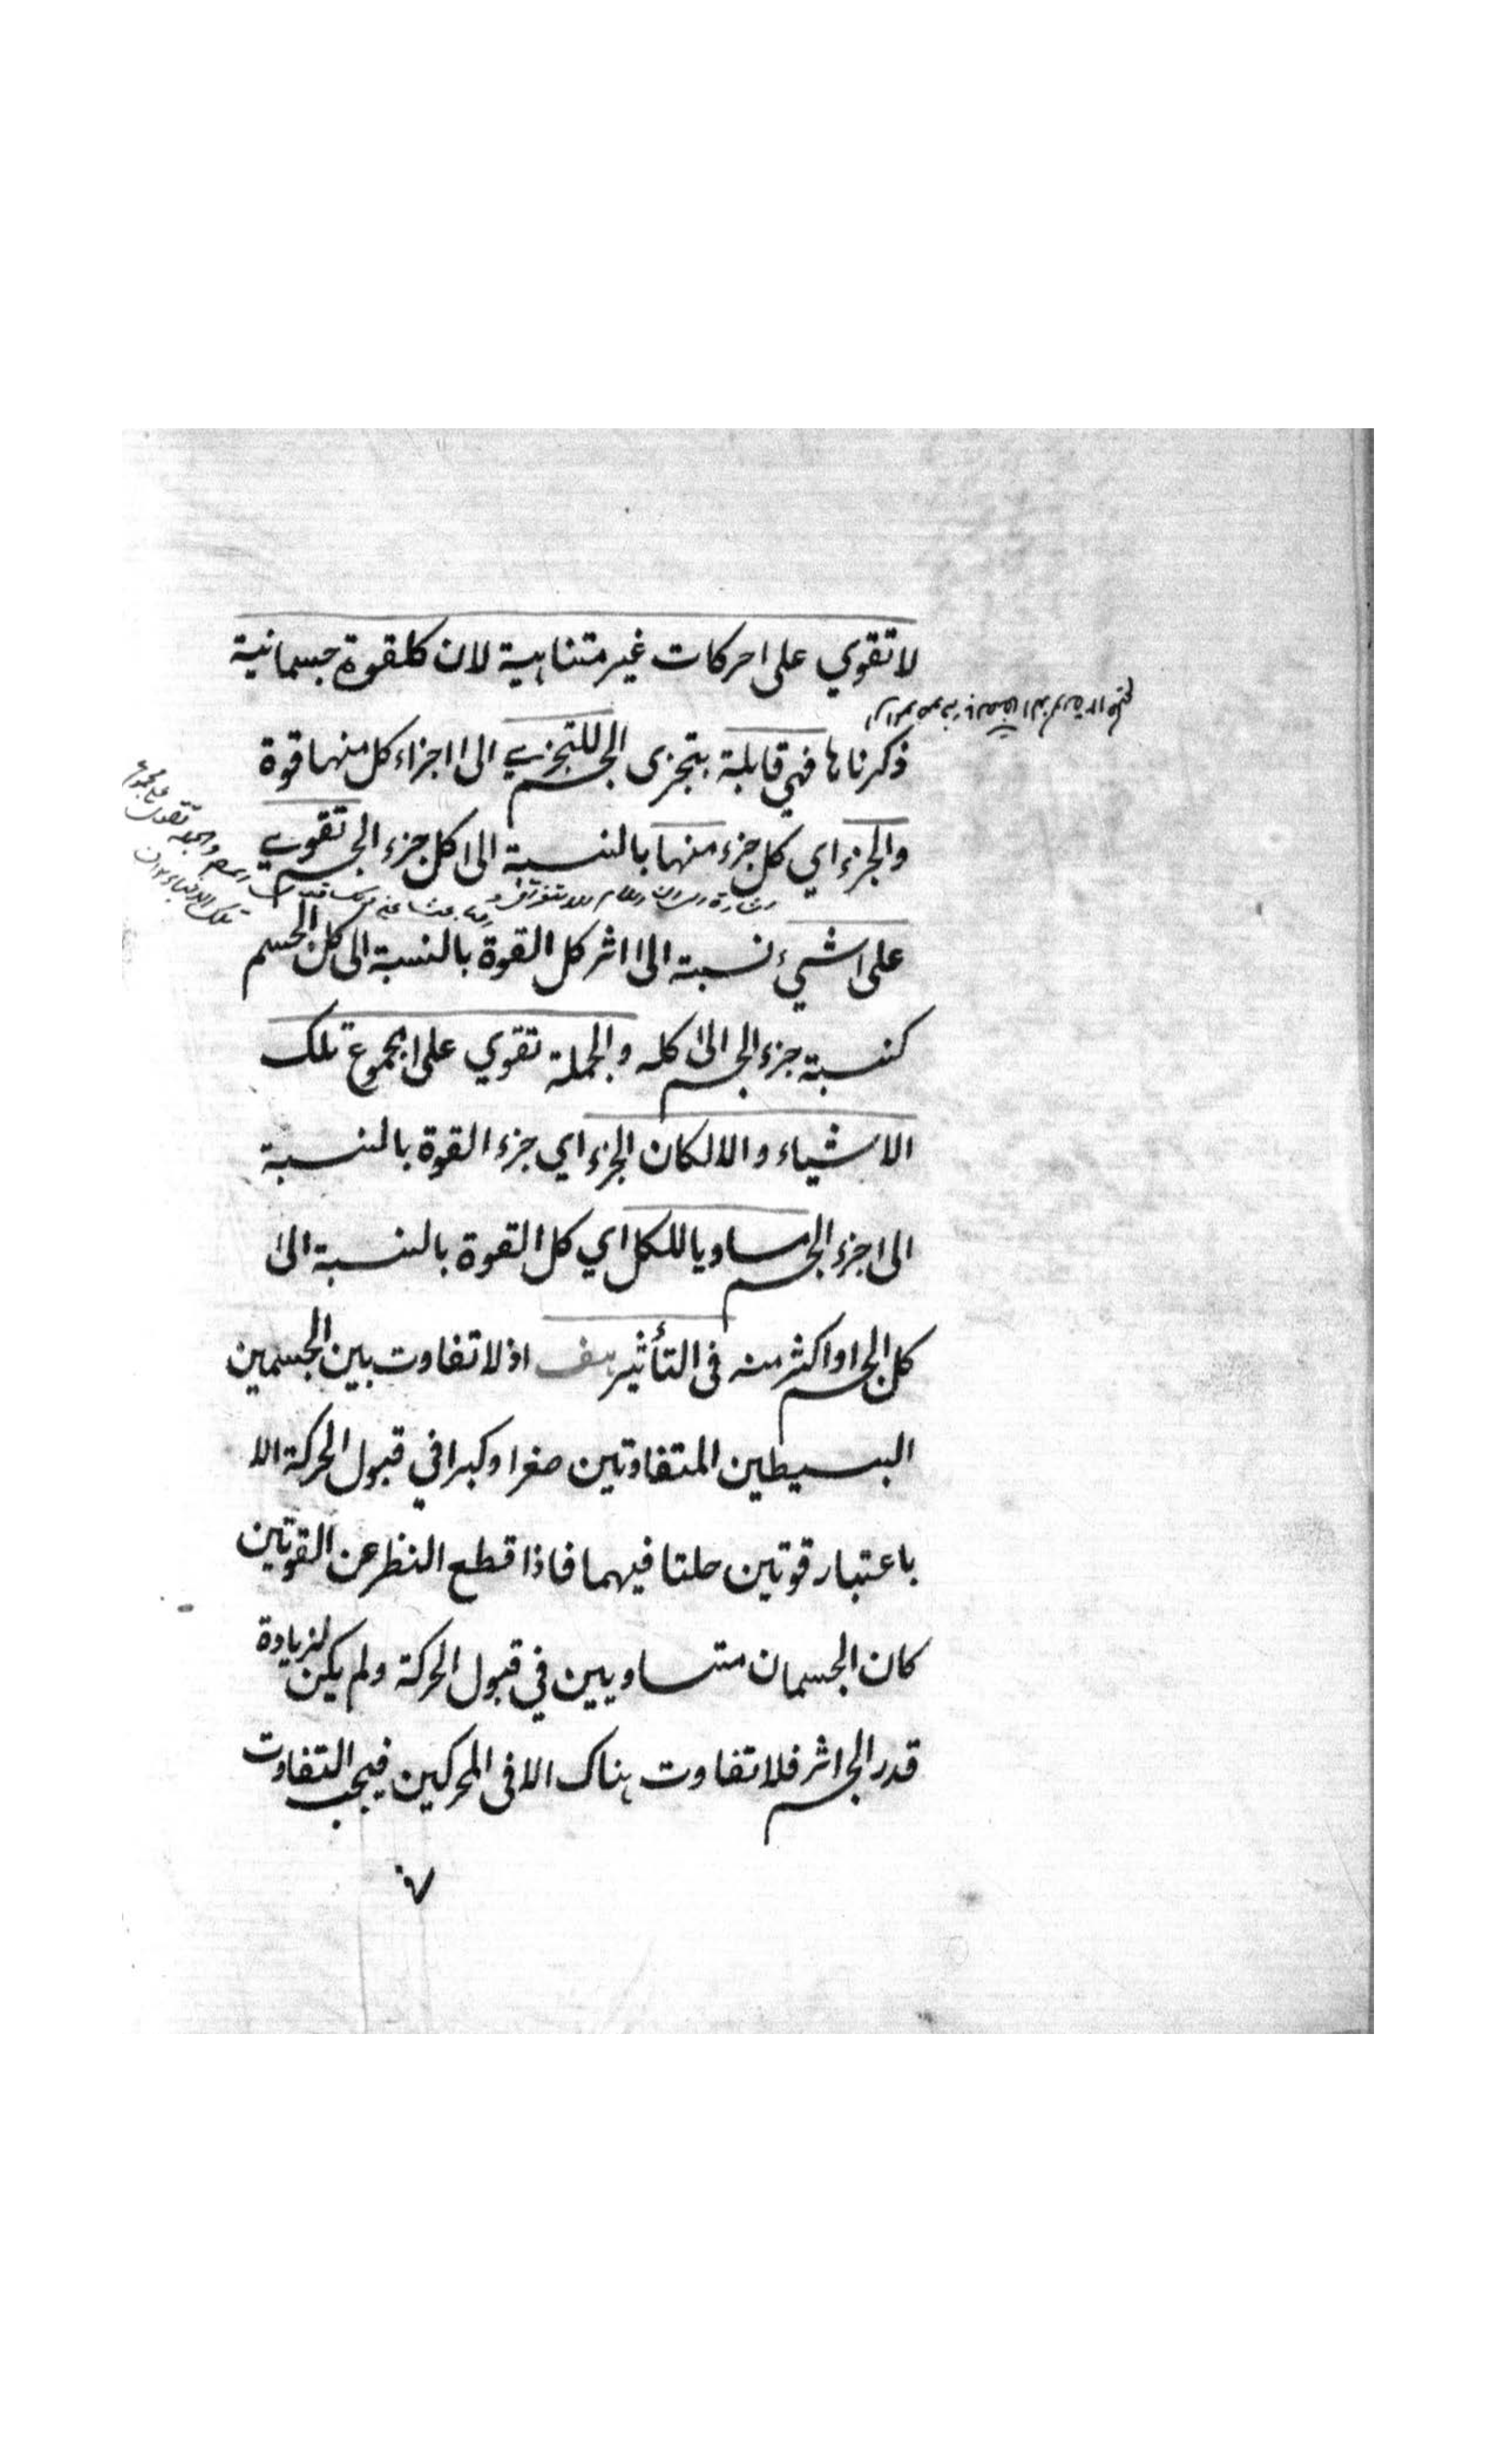 لا تقوي على احركات غير متناهية لان كلقوة جسمانية
ذكرناها فهي قابلة بتجزى الجسم للتجزي الى اجزاء كل منها قوة
والجزء اي كل جزء منها بالنسبة الى كل جزء الجسم تقوي
على شيء نسبته الى اثر كل القوة بالنسبة الى كل الجسم
كنسبة جزء الجسم الى كله والجملة تقوي على مجموع تلك
الاشياء والا لكان الجزء اي جزء القوة بالنسبة
الى جزء الجسم مساويا للكل اي كل القوة بالنسبة الى
كل الجسم او اكثر منه فى التأثير هف اذ لا تفاوت بين الجسمين
البسيطين المتفاوتين صغرا وكبرا في قبول الحركة الا
باعتبار قوتين حلتا فيهما فاذا قطع النظر عن القوتين
كان الجسمان متساويين في قبول الحركة ولم يكن لزيادة
قدر الجسم اثر فلا تفاوت هناك الا فى المحركين فيجب التفاوت
٧